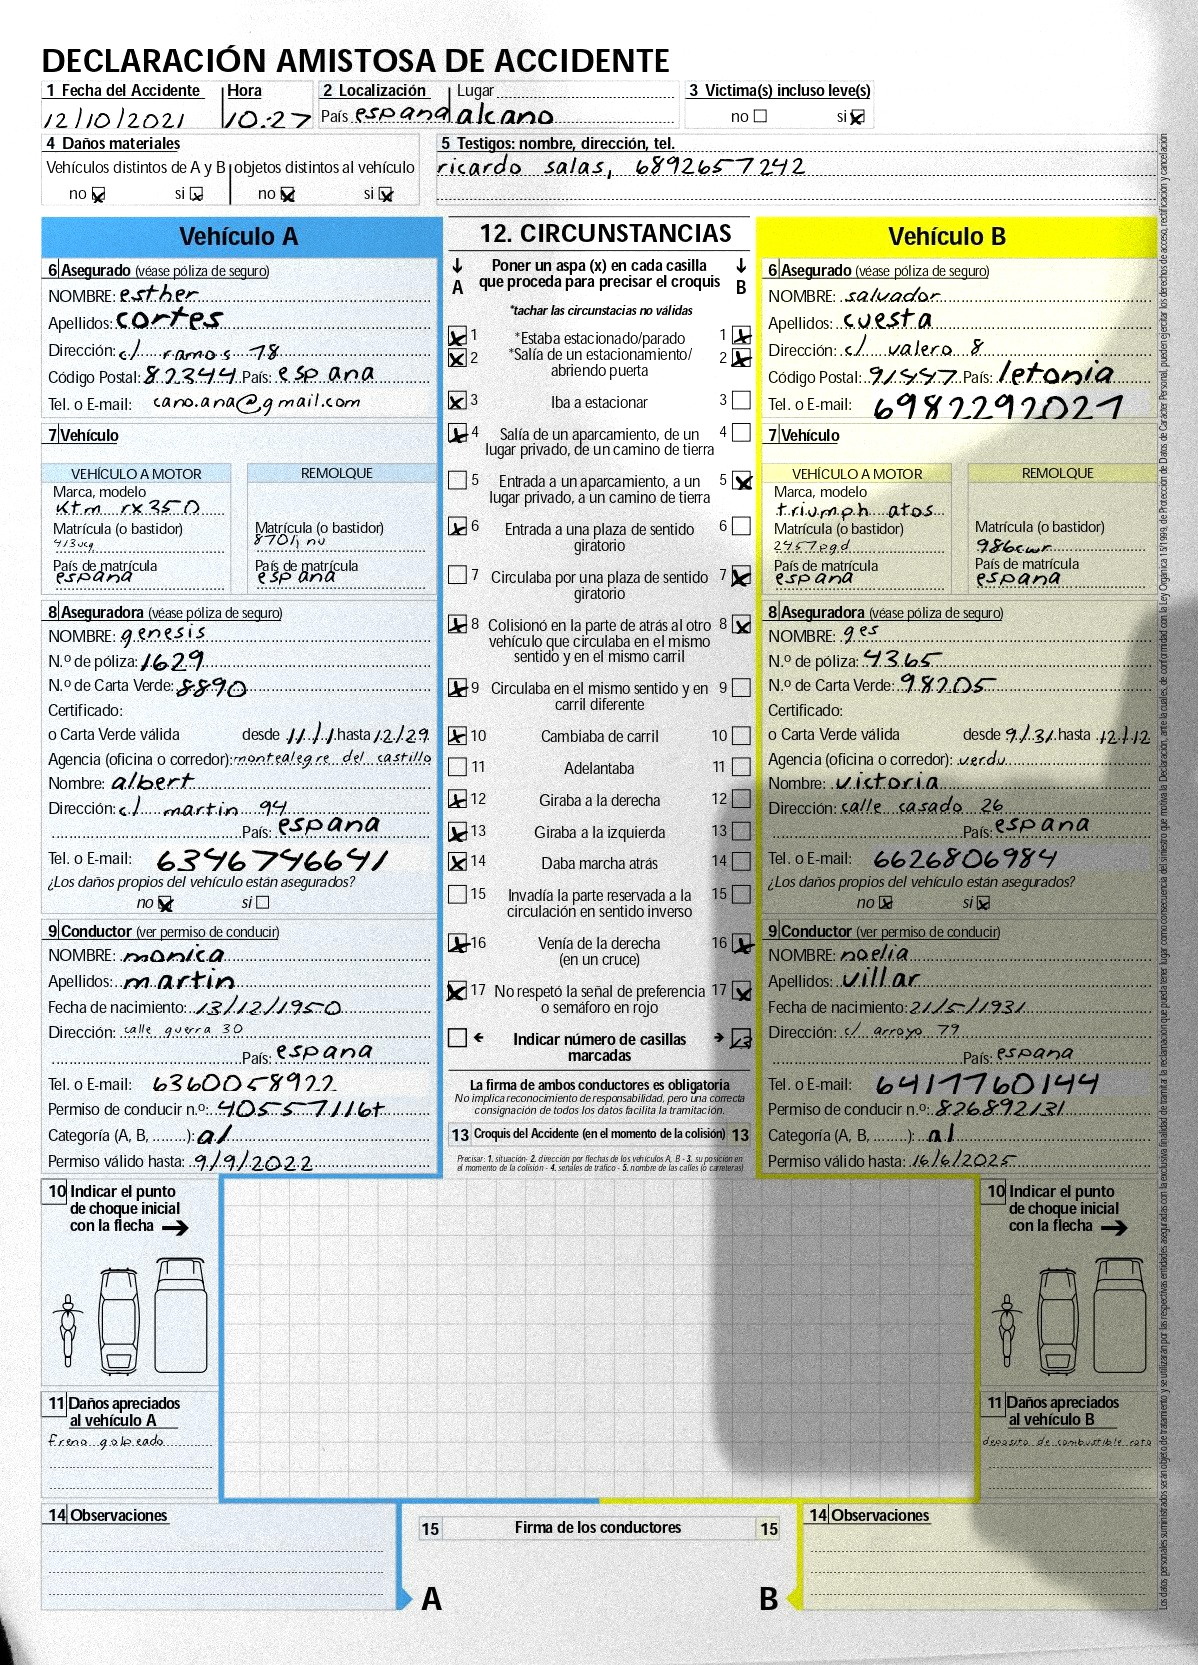 DECLARACIÓN AMISTOSA DE ACCIDENTE
1 Fecha del Accidente Hora 2 Localización Lugar 3 Victima(s) incluso leve(s)
12/10/2021 10:27 País espana alcano no si
4 Daños materiales
Vehículos distintos de A y B objetos distintos al vehículo
no si no si
5 Testigos: nombre, dirección, tel.
ricardo salas, 6892657242
Vehículo A
6 Asegurado (véase póliza de seguro)
NOMBRE: esther
Apellidos: cortes
Dirección: c/ ramos 78
Código Postal: 82344 País: espana
Tel. o E-mail: cano.ana@gmail.com
7 Vehículo
VEHÍCULO A MOTOR REMOLQUE
Marca, modelo
ktm rx350
Matrícula (o bastidor) Matrícula (o bastidor)
413ucg 8701jnu
País de matrícula País de matrícula
espana espana
8 Aseguradora (véase póliza de seguro)
NOMBRE: genesis
N.º de póliza: 1629
N.º de Carta Verde: 8890
Certificado:
o Carta Verde válida desde 11/1 hasta 12/29
Agencia (oficina o corredor): montealegre del castillo
Nombre: albert
Dirección: c/ martin 94
País: espana
Tel. o E-mail: 6346746641
¿Los daños propios del vehículo están asegurados?
no si
9 Conductor (ver permiso de conducir)
NOMBRE: monica
Apellidos: martin
Fecha de nacimiento: 13/12/1950
Dirección: calle guerra 30
País: espana
Tel. o E-mail: 6360058922
Permiso de conducir n.º: 40557116t
Categoría (A, B, ........): a1
Permiso válido hasta: 9/9/2022
12. CIRCUNSTANCIAS
A Poner un aspa (x) en cada casilla que proceda para precisar el croquis B
*tachar las circunstacias no válidas
1 *Estaba estacionado/parado 1
2 *Salía de un estacionamiento/ 2
abriendo puerta
3 Iba a estacionar 3
4 Salía de un aparcamiento, de un 4
lugar privado, de un camino de tierra
5 Entrada a un aparcamiento, a un 5
lugar privado, a un camino de tierra
6 Entrada a una plaza de sentido 6
giratorio
7 Circulaba por una plaza de sentido 7
giratorio
8 Colisionó en la parte de atrás al otro 8
vehículo que circulaba en el mismo
sentido y en el mismo carril
9 Circulaba en el mismo sentido y en 9
carril diferente
10 Cambiaba de carril 10
11 Adelantaba 11
12 Giraba a la derecha 12
13 Giraba a la izquierda 13
14 Daba marcha atrás 14
15 Invadía la parte reservada a la 15
circulación en sentido inverso
16 Venía de la derecha 16
(en un cruce)
17 No respetó la señal de preferencia 17
o semáforo en rojo
Indicar número de casillas
marcadas
13
La firma de ambos conductores es obligatoria
No implica reconocimiento de responsabilidad, pero una correcta
consignación de todos los datos facilita la tramitación.
13 Croquis del Accidente (en el momento de la colisión) 13
Precisar: 1. situación- 2. dirección por flechas de los vehículos A, B - 3. su posición en
el momento de la colisión - 4. señales de tráfico - 5. nombre de las calles (o carreteras)
Vehículo B
6 Asegurado (véase póliza de seguro)
NOMBRE: salvador
Apellidos: cuesta
Dirección: c/ valero 8
Código Postal: 91447 País: letonia
Tel. o E-mail: 6982292021
7 Vehículo
VEHÍCULO A MOTOR REMOLQUE
Marca, modelo
triumph atos
Matrícula (o bastidor) Matrícula (o bastidor)
2457pgd 986cwr
País de matrícula País de matrícula
espana espana
8 Aseguradora (véase póliza de seguro)
NOMBRE: ges
N.º de póliza: 4365
N.º de Carta Verde: 98205
Certificado:
o Carta Verde válida desde 9/31 hasta 12/12
Agencia (oficina o corredor): verdu
Nombre: victoria
Dirección: calle casado 26
País: espana
Tel. o E-mail: 6626806984
¿Los daños propios del vehículo están asegurados?
no si
9 Conductor (ver permiso de conducir)
NOMBRE: noelia
Apellidos: villar
Fecha de nacimiento: 21/5/1931
Dirección: c/ arroyo 79
País: espana
Tel. o E-mail: 6417760144
Permiso de conducir n.º: 826892131
Categoría (A, B, ........): a1
Permiso válido hasta: 16/6/2025
10 Indicar el punto
de choque inicial
con la flecha
11 Daños apreciados
al vehículo A
freno golpeado
10 Indicar el punto
de choque inicial
con la flecha
11 Daños apreciados
al vehículo B
deposito de combustible roto
14 Observaciones
15 Firma de los conductores 15
A B
14 Observaciones
Los datos personales suministrados serán objeto de tratamiento y se utilizarán por las respectivas entidades aseguradas con la exclusiva finalidad de tramitar la reclamación que pueda tener lugar como consecuencia del siniestro que motiva la Declaración, ante la cuales, de conformidad con la Ley Orgánica 15/1999, de Protección de Datos de Carácter Personal, pueden ejercitar los derechos de acceso, rectificación y cancelación